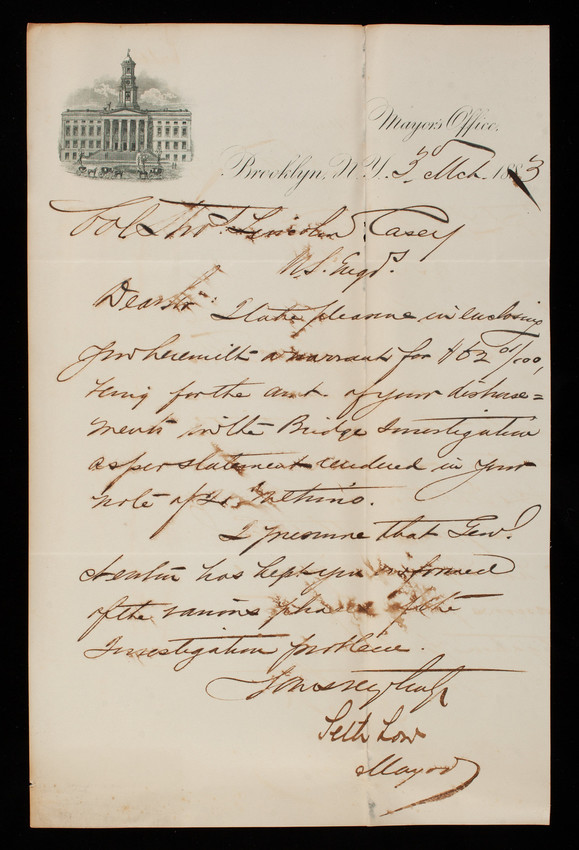 Mayor's Office,
Brooklyn, N.Y. 3d Mch. 1883
Col Thos. Lincoln Casey
U.S. Engrs.
Dear Sir: I take pleasure in enclosing
you herewith a warrant for $62 01/100,
being for the amt. of your disburse=
ments in the Bridge Investigation
as per statement rendered in your
note of 
I presume that Genl.
has kept you informed
of the various phases of the
Investigation problem.
Yours very truly
Seth Low
Mayor